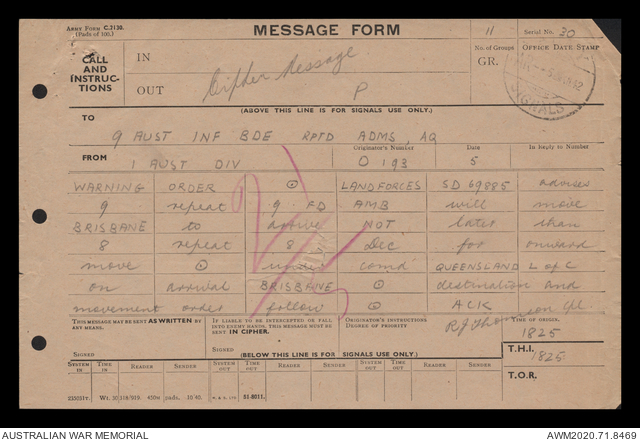 ARMY FORM C.2130.
(Pads of 100.)
MESSAGE FORM
11
Serial No. 30
CALL
AND
INSTRUC-
TIONS
IN
OUT
Cipher Message
P
No. of Groups
GR.
OFFICE DATE STAMP
SIGNALS
(ABOVE THIS LINE IS FOR SIGNALS USE ONLY.)
TO
9 AUST INF BDE RPTD ADMS, AQ
FROM
1 AUST DIV
Originator's Number
O 193
Date
5
In Reply to Number
WARNING ORDER ⊙ LANDFORCES SD 69885 advises
9 repeat 9 FD AMB will move
BRISBANE to arrive NOT later than
8 repeat 8 Dec for onward
move ⊙ under comd QUEENSLAND L of C
on arrival BRISBANE ⊙ destination and
movement order follow ⊙ ACK
THIS MESSAGE MAY BE SENT AS WRITTEN BY
ANY MEANS.
SIGNED
IF LIABLE TO BE INTERCEPTED OR FALL
INTO ENEMY HANDS, THIS MESSAGE MUST BE
SENT IN CIPHER.
SIGNED
ORIGINATOR'S INSTRUCTIONS
DEGREE OF PRIORITY
RJ Thomson Cpl.
TIME OF ORIGIN.
1825
(BELOW THIS LINE IS FOR SIGNALS USE ONLY.)
T.H.I.
1825
T.O.R.
SYSTEM IN
TIME IN
READER
SENDER
SYSTEM OUT
TIME OUT
READER
SENDER
SYSTEM OUT
TIME OUT
READER
SENDER
51-8011.
AUSTRALIAN WAR MEMORIAL
AWM2020.71.8469